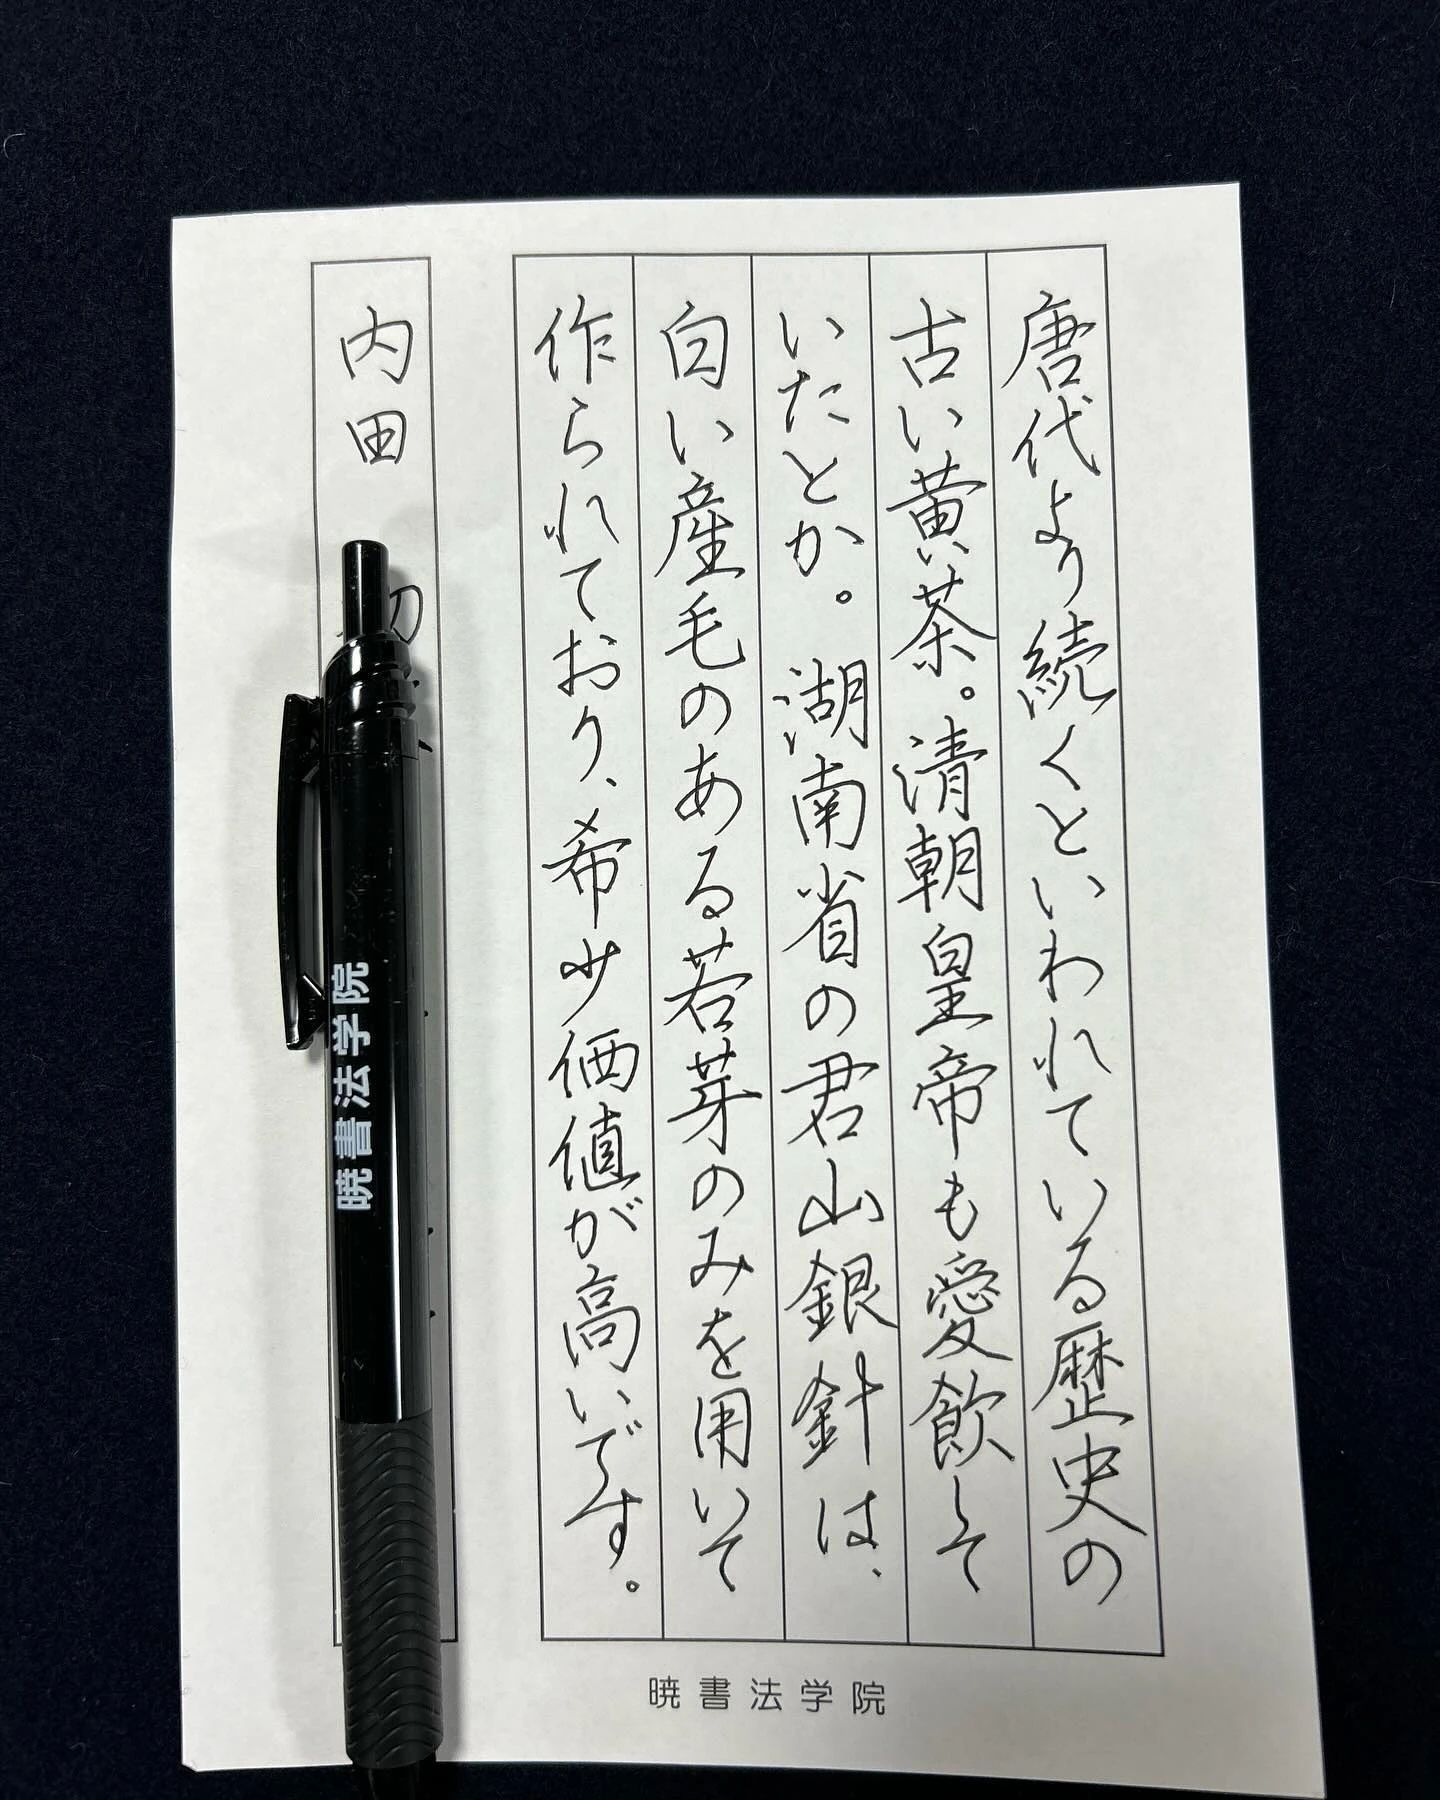 唐代より続くといわれている歴史の
古い黄茶。清朝皇帝も愛飲して
いたとか。湖南省の君山銀針は、
白い産毛のある若芽のみを用いて
作られており、希少価値が高いです。
内田
暁書法学院
暁書法学院